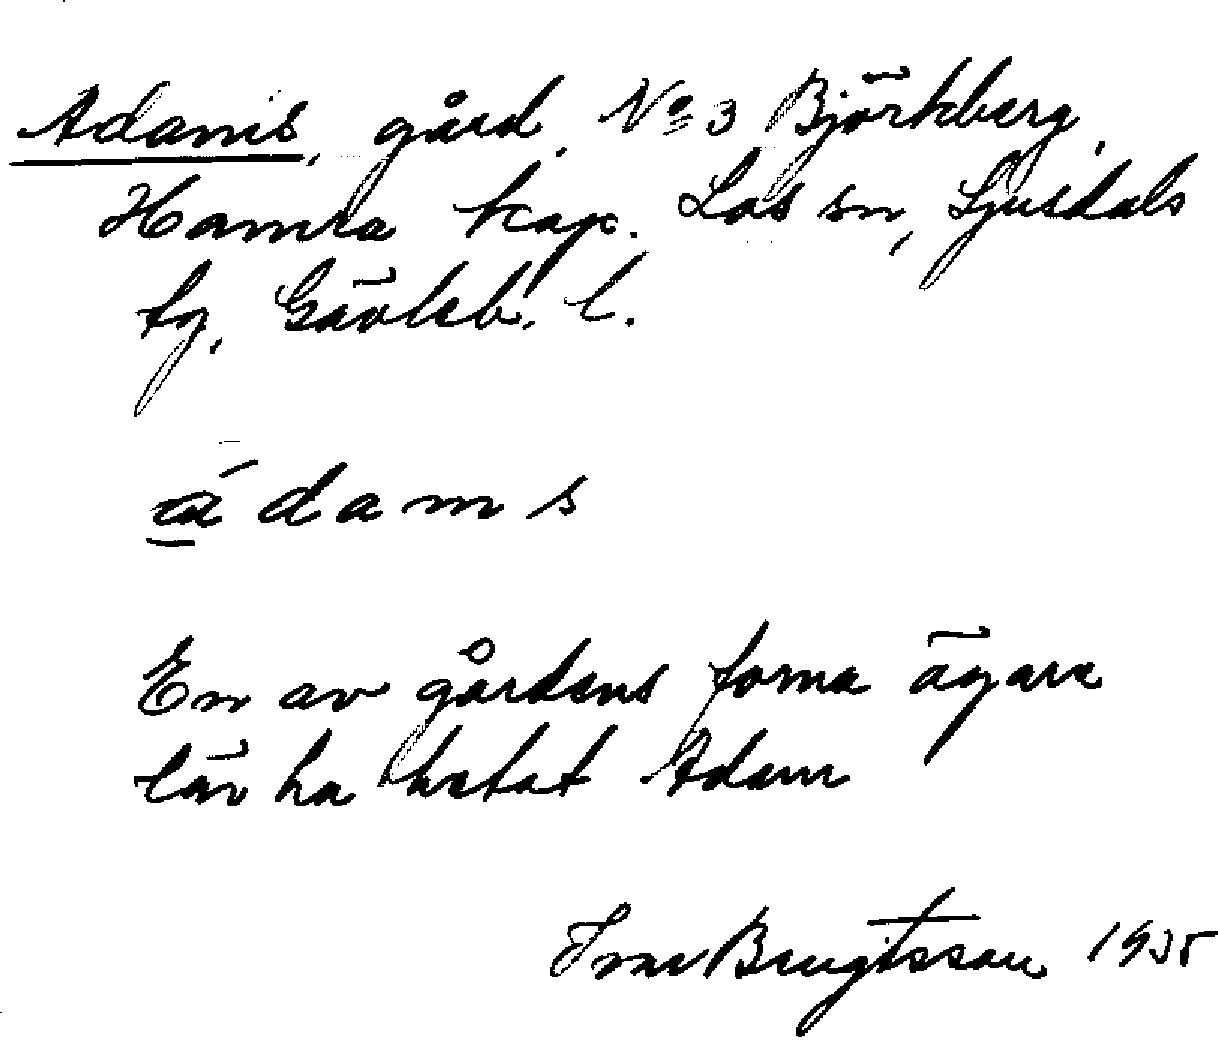 Adams, gård, No 3 Björkberg,
Hamra kap. Los sn, Ljusdals
tg, Gävleb. l.
á̲dams
En av gårdens forna ägare
lär ha hetat Adam
Ivar Bengtsson 1935